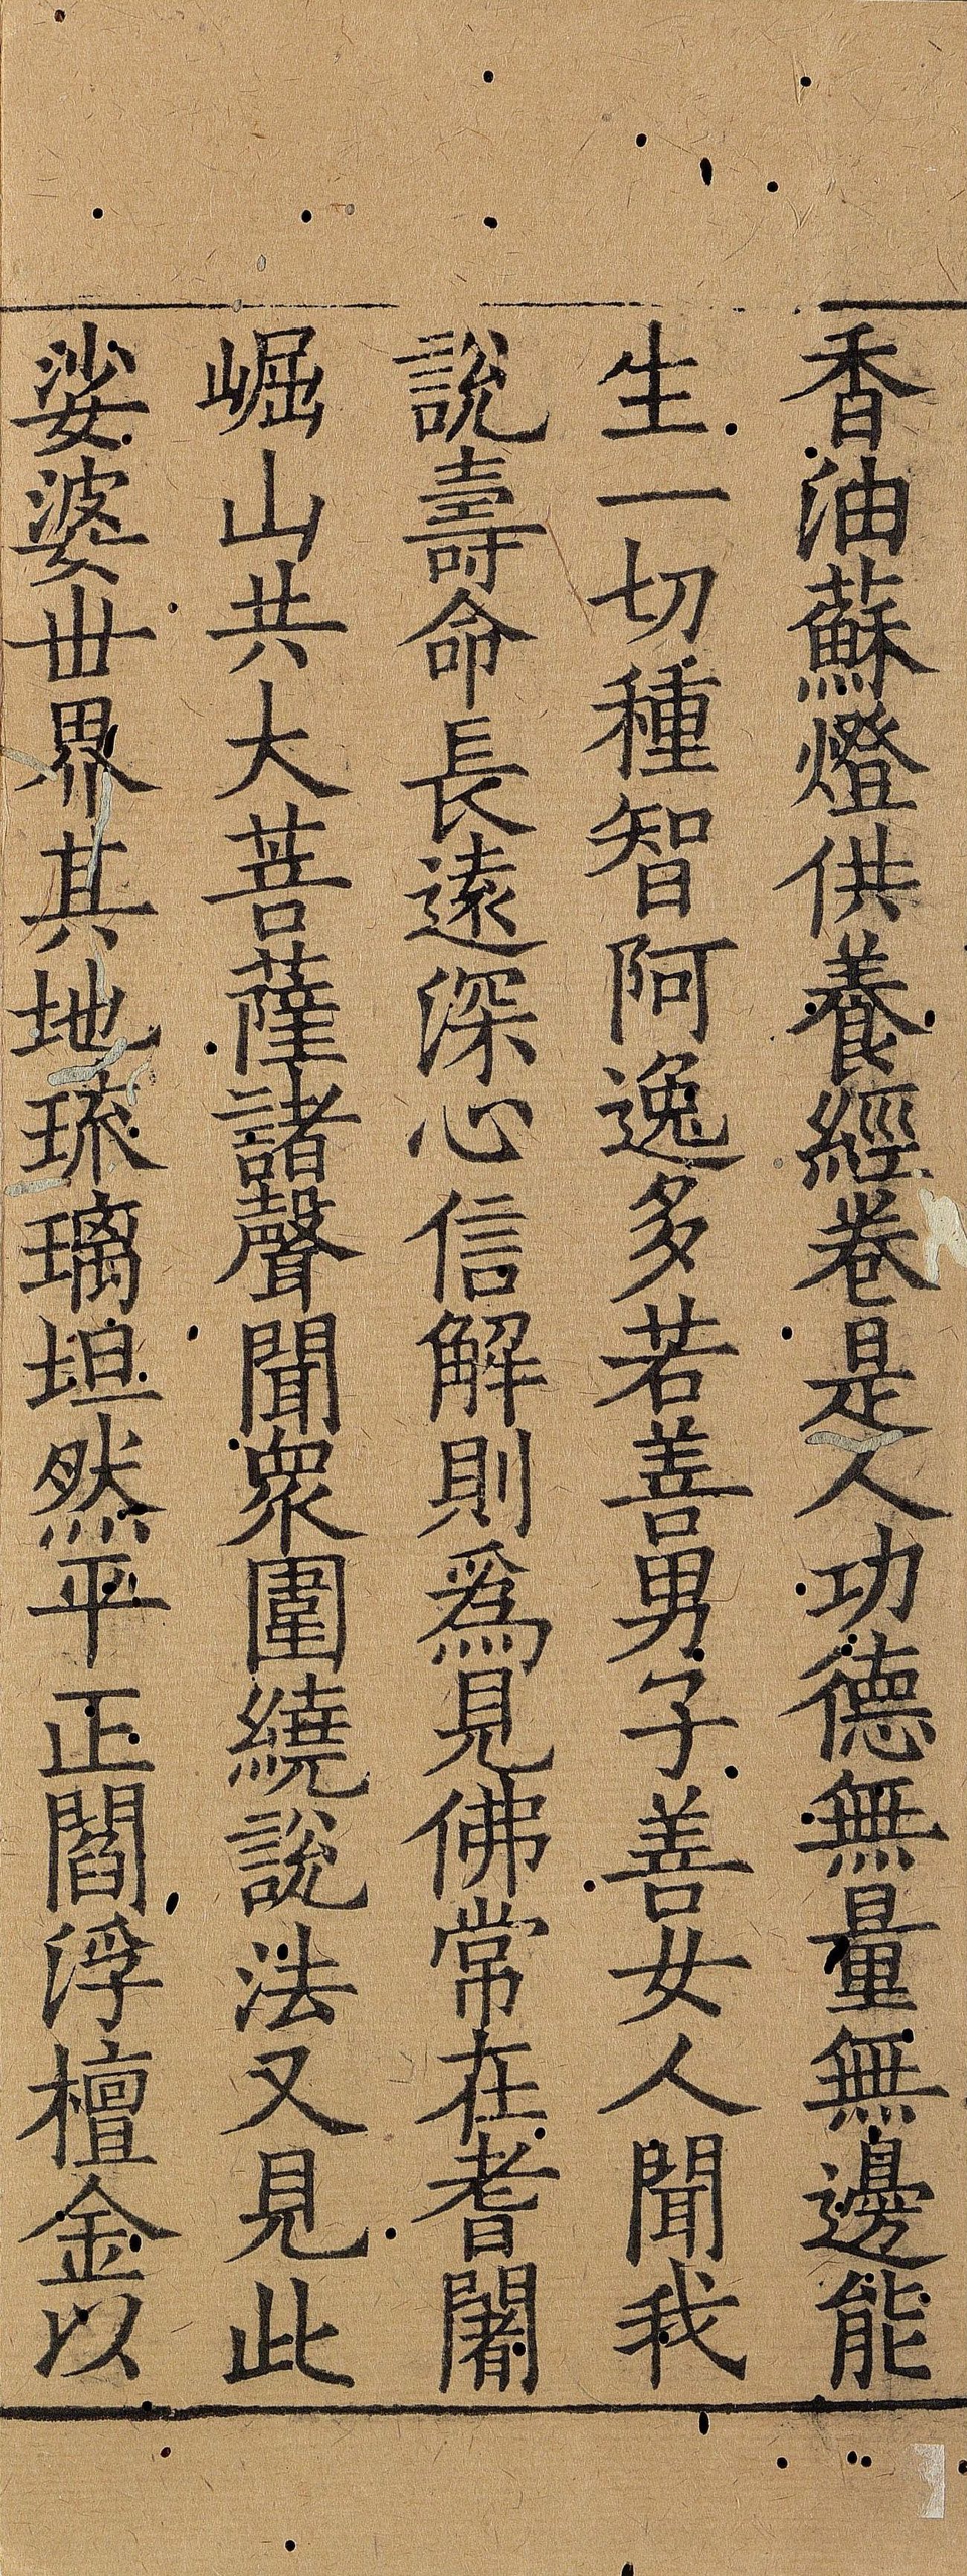 香油蘇燈供養經卷是人功德無量無邊能
生一切種智阿逸多若善男子善女人聞我
說壽命長遠深心信解則爲見佛常在耆闍
崛山共大菩薩諸聲聞眾圍繞說法又見此
娑婆世界其地琉璃坦然平正閻浮檀金以